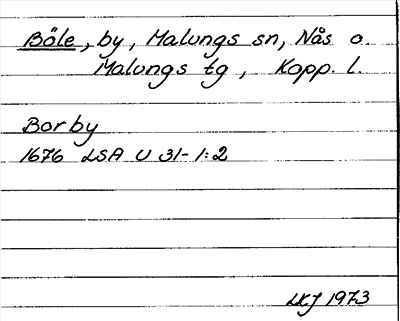 Böle, by, Malungs sn, Nås o.
Malungs tg, Kopp. l.
Borby
1676 LSA U 31-1:2
LKJ 1973